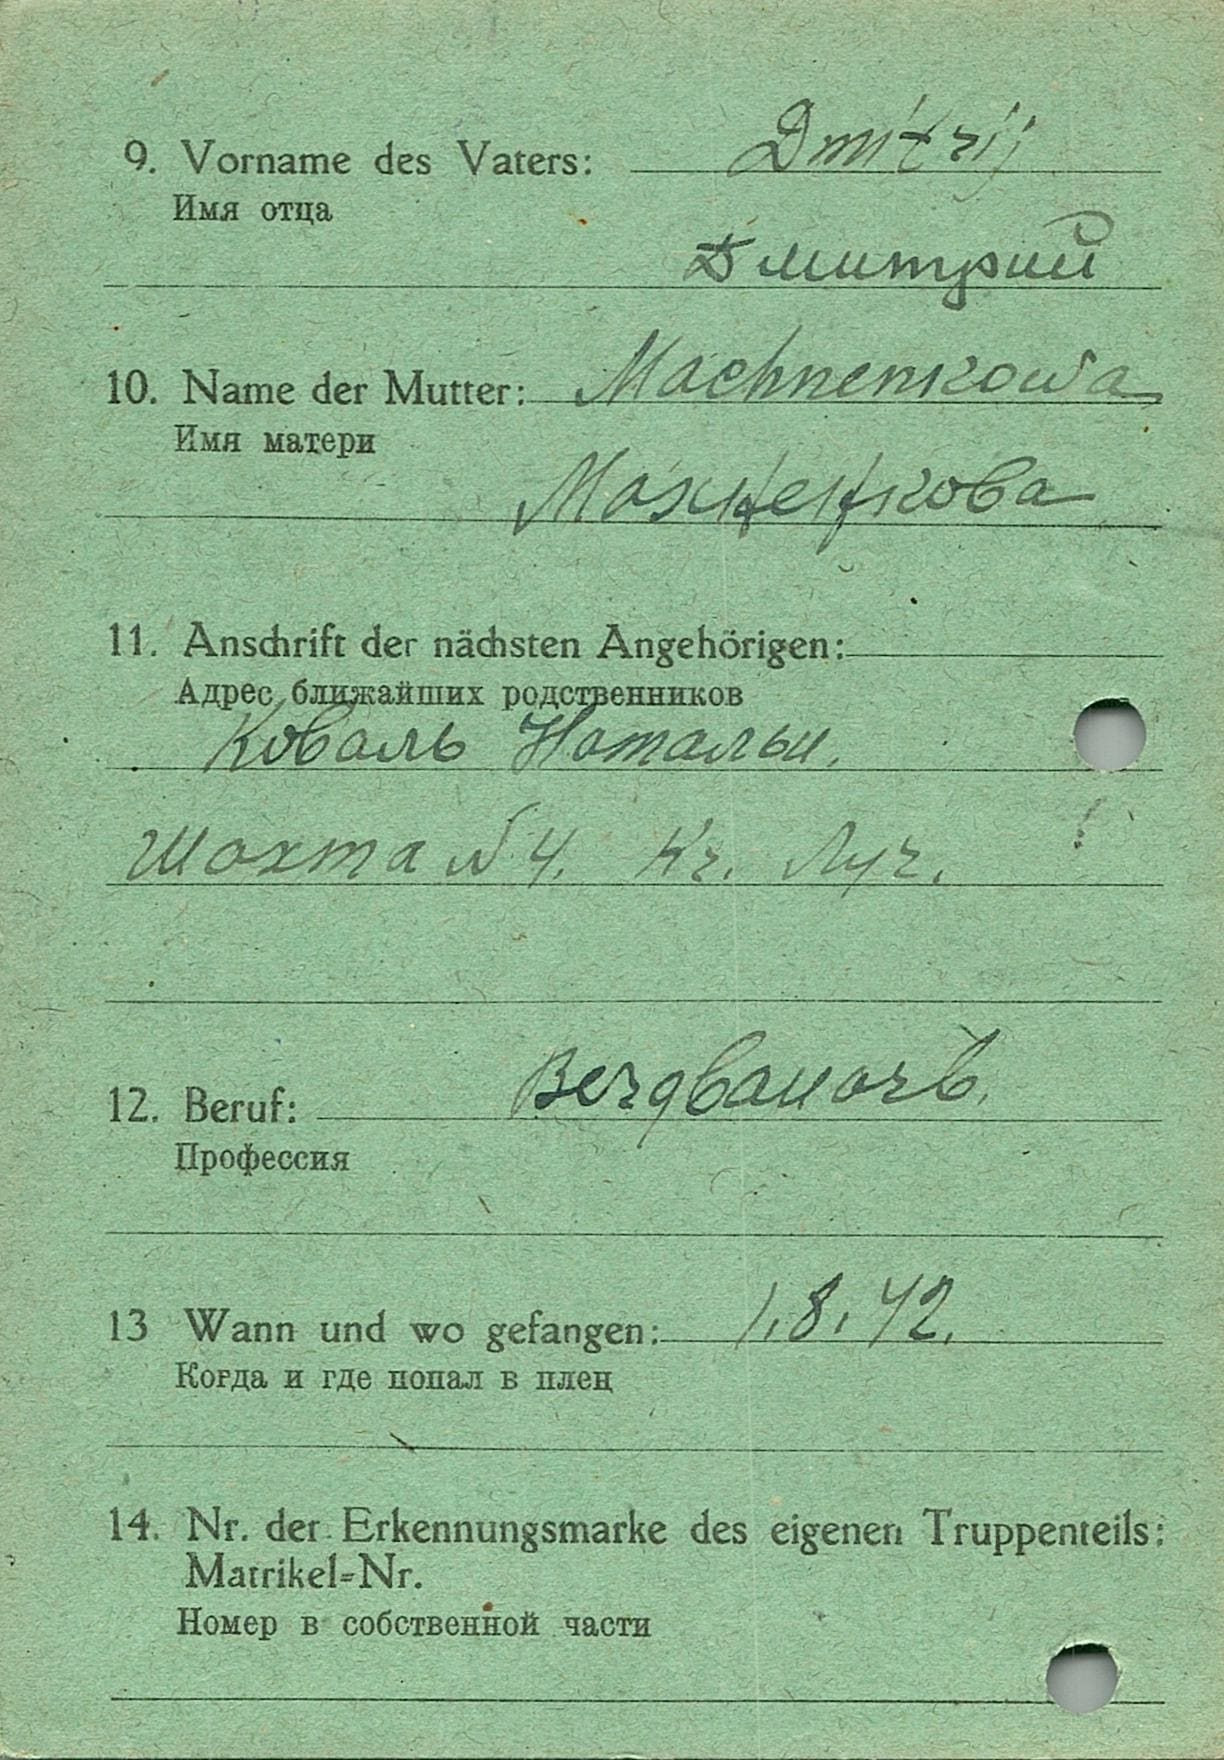 9. Vorname des Vaters: Dmitrij
Имя отца
Дмитрий
10. Name der Mutter: Machnenkowa
Имя матери
Махненкова
11. Anschrift der nächsten Angehörigen:
Адрес ближайших родственников
Коваль Натальи.
Шахта №4. Кр. Луч. !
12. Beruf:
Профессия
13 Wann und wo gefangen: 1.8.42.
Когда и где попал в плен
14. Nr. der Erkennungsmarke des eigenen Truppenteils:
Matrikel=Nr.
Номер в собственной части